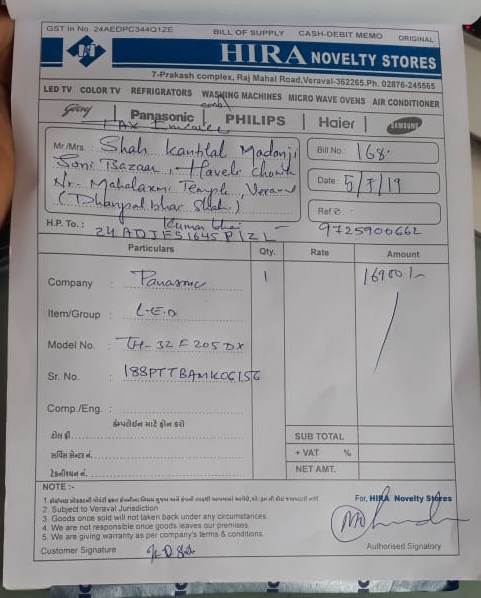 GST In No. 24AEDPC344Q1ZE BILL OF SUPPLY CASH-DEBIT MEMO ORIGINAL
HIRA NOVELTY STORES
7-Prakash complex, Raj Mahal Road,Veraval-362265.Ph. 02876-245565
LED TV COLOR TV REFRIGRATORS WASHING MACHINES MICRO WAVE OVENS AIR CONDITIONER
Godrej Panasonic PHILIPS Haier SAMSUNG
Tax Invoice
Mr/Mrs Shah Kantilal Madanji
Soni Bazaar, Haveli Chowk
Nr. Mahalaxmi Temple, Veraval
(Dharmpal bhai Shah.)
Kumar bhai
Bill No. 168.
Date 5/7/19
Ref
9725900662
H.P. To.: 24ADJFS1645P1ZL
Particulars Qty. Rate Amount
Company : Panasonic 1 16900/-
Item/Group : L-E-D
Model No. : TH-32F205DX
Sr. No. : 188PTTBAMK06156
Comp./Eng. :
કંમ્પલેઈન માટે ફોન કરો
ટોલ ફ્રી
સર્વિસ સેન્ટર નં.
ટેકનીશ્યન નં.
SUB TOTAL
+ VAT %
NET AMT.
NOTE :-
2. Subject to Veraval Jurisdiction
3. Goods once sold will not taken back under any circumstances.
4. We are not responsible once goods leaves our premises.
5. We are giving warranty as per company's terms & conditions.
For, HIRA Novelty Stores
Customer Signature
Authorised Signatory